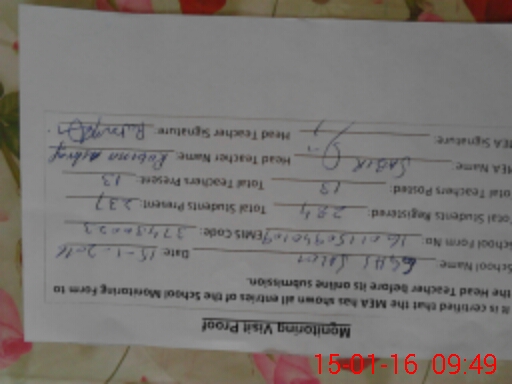 Monitoring Visit Proof
It is certified that the MEA has shown all entries of the School Monitoring Form to
the Head Teacher before its online submission.
School Name: GGHS Date: 15-1-2016
School Form No: EMIS Code:
Total Students Registered: 284 Total Students Present: 237
Total Teachers Posted: 13 Total Teachers Present: 13
MEA Name: SABIR Head Teacher Name: Robina
MEA Signature: Head Teacher Signature:
15-01-16 09:49